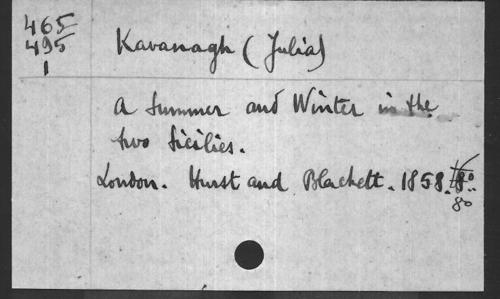 465
495
1
Kavanagh (Julia)
A Summer and Winter in the
two Sicilies.
London. Hurst and Blackett. 1858. 8..
80